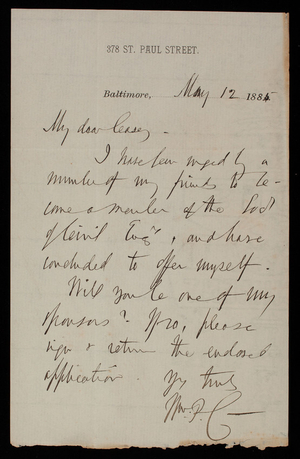 378 ST. PAUL STREET.
Baltimore, May 12 1885
My dear Casey -
I have been urged by a
number of my friends to be-
come a member of the Socy
of Civil Engrs, and have
concluded to offer myself.
Will you be one of my
sponsors? If so, please
sign & return the enclosed
application. Yrs truly
Wm. P. C